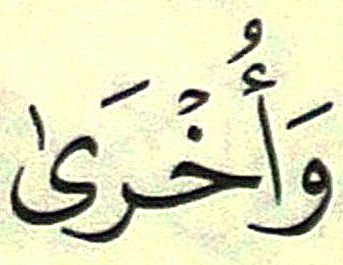 وَأُخْرَىٰ